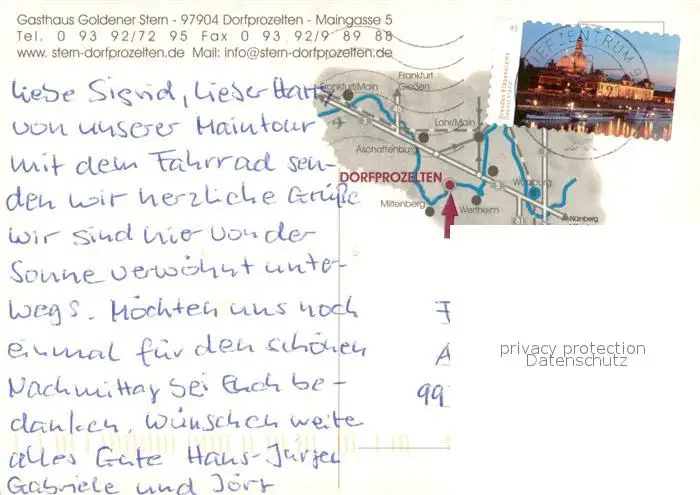 Gasthaus Goldener Stern - 97904 Dorfprozelten - Maingasse 5
Tel. 0 93 92/72 95 Fax 0 93 92/9 89 88
www. stern-dorfprozelten.de Mail: info@stern-dorfprozelten.de
Liebe Sigrid, lieber Hart
von unserer Maintour
mit dem Fahrrad sen-
den wir herzliche Grüße
wir sind hier von der
Sonne verwöhnt unter-
wegs. Möchten uns noch
einmal für den schönen
Nachmittag bei Euch be-
danken. Wünschen weite
alles Gute Hans-Jürgen
Gabriele und Jörg
45
Dresden Elbpanorama
Deutschland
EFZENTRUM 9
Frankfurt/Main
Frankfurt
Gießen
45
Lohr/Main
Aschaffenburg
3
DORFPROZELTEN
Würzburg
Miltenberg
Wertheim
Nürnberg
F
A
99
privacy protection
Datenschutz